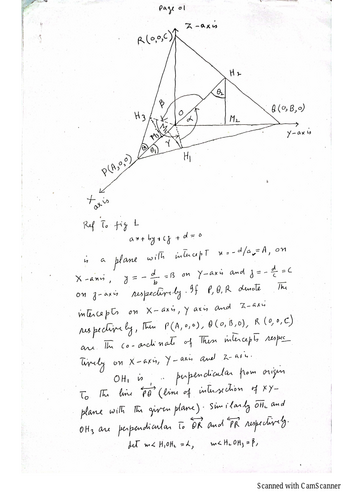 Page 01
Z-axis
R(0,0,C)
H2
θ2
H3
β
O
α
Q(0,B,0)
M2
Y-axis
M3
M1
θ3
θ1
γ
H1
P(A,0,0)
X
axis
Ref to fig 1.
ax+by+cz+d=0
is a plane with intercept x=-d/a=A, on
X-axis, y=-d/b=B on Y-axis and z=-d/c=C
on z-axis respectively. If P,Q,R denote the
intercepts on X-axis, Y axis and Z-axis
respectively, then P(A,0,0), Q(0,B,0), R(0,0,C)
are the co-ordinate of these intercepts respec-
tively on X-axis, Y-axis and Z-axis.
OH1 is perpendicular from origin
to the line PQ (line of intersection of xy-
plane with the given plane). Similarly OH2 and
OH3 are perpendicular to QR and PR respectively.
Let m<H1OH2=α, m<H2OH3=β,
Scanned with CamScanner